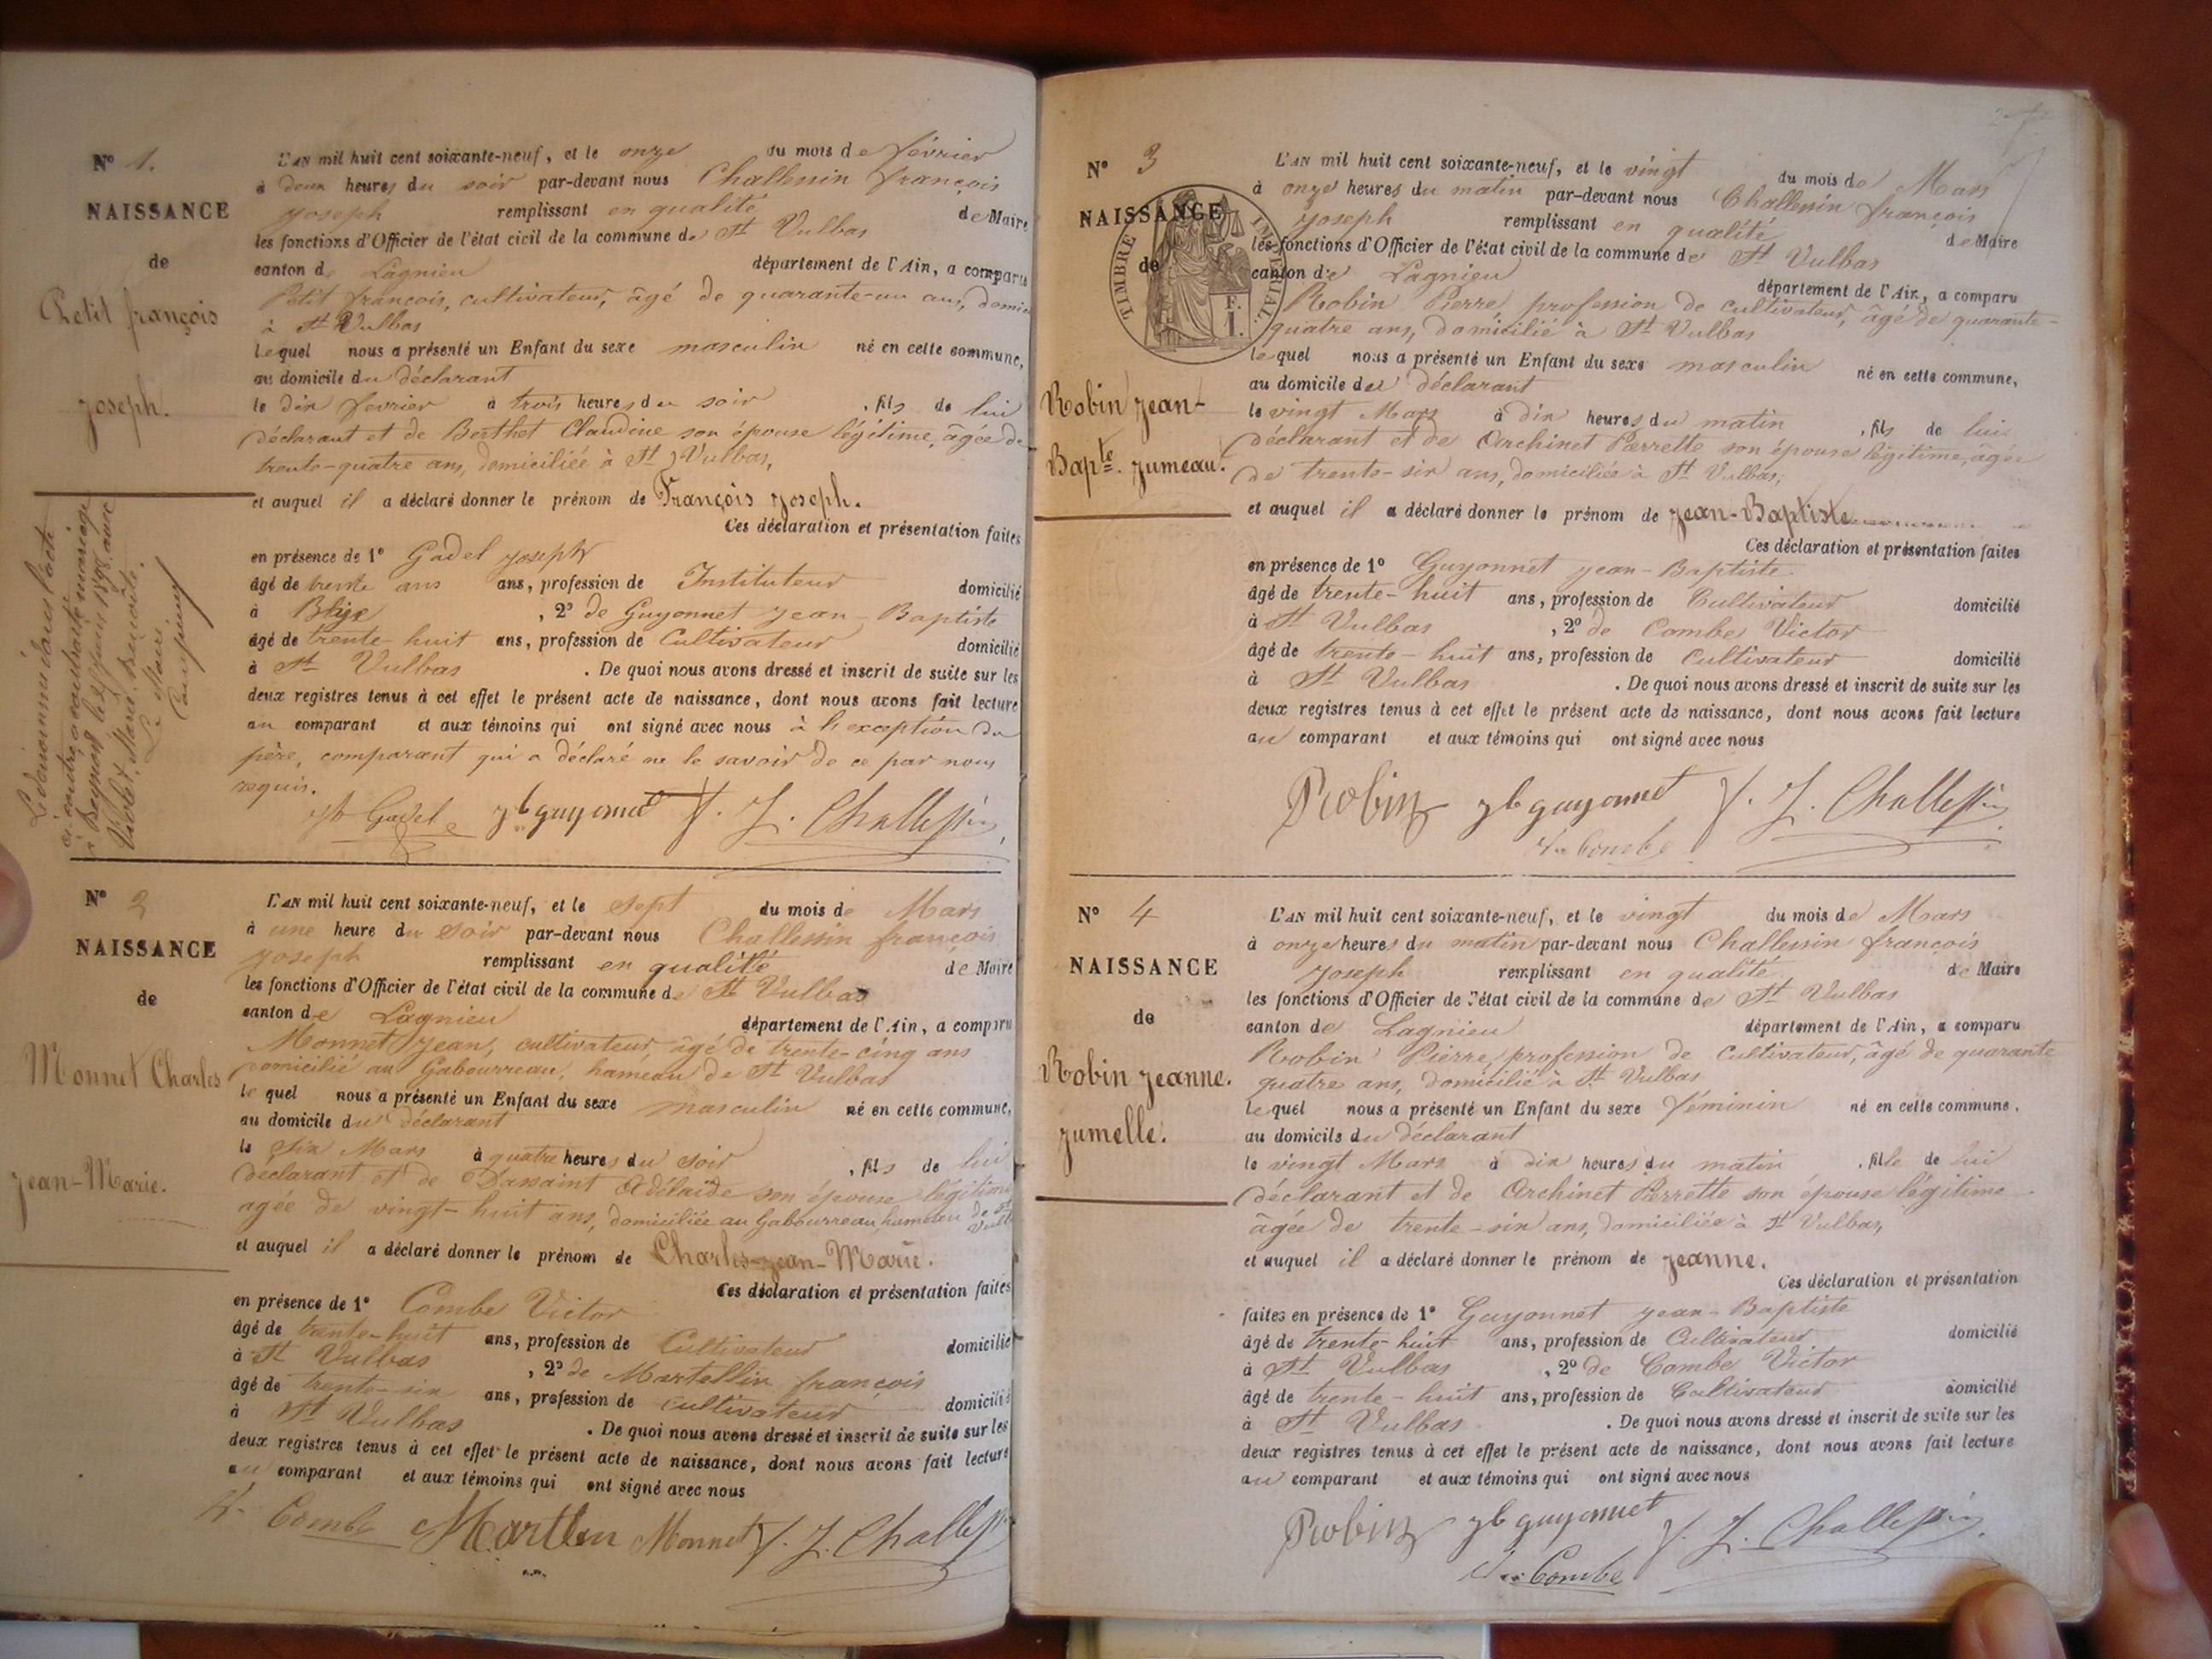 N° 1.
NAISSANCE
de
Petit françois
Joseph.
L'AN mil huit cent soixante-neuf, et le onze du mois de février
à deux heures du soir par-devant nous Challessin françois
Joseph remplissant en qualité de Maire
les fonctions d'Officier de l'état civil de la commune de St Vulbas
canton de Lagnieu département de l'Ain, a comparu
Petit françois, cultivateur, âgé de quarante-un ans, domic
à St Vulbas
lequel nous a présenté un Enfant du sexe masculin né en cette commune,
au domicile du déclarant
le dix février à trois heures du soir, fils de lui
déclarant et de Berthet Claudine son épouse légitime, âgée de
trente-quatre ans, domiciliée à St Vulbas,
et auquel il a déclaré donner le prénom de François Joseph.
Ces déclaration et présentation faites
en présence de 1° Gadel Joseph
âgé de trente ans ans, profession de Instituteur domicilié
à , 2° de Guyonnet Jean-Baptiste
âgé de trente-huit ans, profession de Cultivateur domicilié
à St Vulbas . De quoi nous avons dressé et inscrit de suite sur les
deux registres tenus à cet effet le présent acte de naissance, dont nous avons fait lecture
au comparant et aux témoins qui ont signé avec nous à l'exception du
père, comparant qui a déclaré ne le savoir de ce par nous
requis.
Gadel jb guyonnet f. J. Challessin
Le dénommé dans l'acte
ci-contre a contracté mariage
à le 1898 avec
Violet, Marie
Le Maire
N° 2
NAISSANCE
de
Monnet Charles
Jean-Marie.
L'AN mil huit cent soixante-neuf, et le sept du mois de Mars
à une heure du soir par-devant nous Challessin françois
Joseph remplissant en qualité de Maire
les fonctions d'Officier de l'état civil de la commune de St Vulbas
canton de Lagnieu département de l'Ain, a comparu
Monnet Jean, cultivateur, âgé de trente-cinq ans
domicilié au Gabourreau, hameau de St Vulbas
lequel nous a présenté un Enfant du sexe masculin né en cette commune,
au domicile du déclarant
le six Mars à quatre heures du soir, fils de lui
déclarant et de Dassaint Adélaïde son épouse légitime
agée de vingt-huit ans, domiciliée au Gabourreau, hameau de St Vulb
et auquel il a déclaré donner le prénom de Charles-Jean-Marie.
Ces déclaration et présentation faites
en présence de 1° Combe Victor
âgé de trente-huit ans, profession de Cultivateur domicilié
à St Vulbas , 2° de Martellin françois
âgé de trente-six ans, profession de cultivateur domicilié
à St Vulbas . De quoi nous avons dressé et inscrit de suite sur les
deux registres tenus à cet effet le présent acte de naissance, dont nous avons fait lecture
au comparant et aux témoins qui ont signé avec nous
V. Combe Monnet f. J. Challess
N° 3
NAISSANCE
de
TIMBRE IMPÉRIAL.
F.
1.
Robin Jean-
Bapte. Jumeau.
L'AN mil huit cent soixante-neuf, et le vingt du mois de Mars
à onze heures du matin par-devant nous Challessin françois
Joseph remplissant en qualité de Maire
les fonctions d'Officier de l'état civil de la commune de St Vulbas
canton de Lagnieu département de l'Ain, a comparu
Robin Pierre, profession de cultivateur, âgé de quarante-
quatre ans, domicilié à St Vulbas
lequel nous a présenté un Enfant du sexe masculin né en cette commune,
au domicile du déclarant
le vingt Mars à dix heures du matin, fils de lui
déclarant et de Archinet Pierrette son épouse légitime, âgée
de trente-six ans, domiciliée à St Vulbas,
et auquel il a déclaré donner le prénom de Jean-Baptiste
Ces déclaration et présentation faites
en présence de 1° Guyonnet Jean-Baptiste
âgé de trente-huit ans, profession de Cultivateur domicilié
à St Vulbas , 2° de Combe Victor
âgé de trente-huit ans, profession de Cultivateur domicilié
à St Vulbas . De quoi nous avons dressé et inscrit de suite sur les
deux registres tenus à cet effet le présent acte de naissance, dont nous avons fait lecture
au comparant et aux témoins qui ont signé avec nous
Robin jb guyonnet f. J. Challessin
combe
N° 4
NAISSANCE
de
Robin Jeanne.
jumelle.
L'AN mil huit cent soixante-neuf, et le vingt du mois de Mars
à onze heures du matin par-devant nous Challessin françois
Joseph remplissant en qualité de Maire
les fonctions d'Officier de l'état civil de la commune de St Vulbas
canton de Lagnieu département de l'Ain, a comparu
Robin Pierre, profession de Cultivateur, âgé de quarante
quatre ans, domicilié à St Vulbas
lequel nous a présenté un Enfant du sexe féminin né en cette commune,
au domicile du déclarant
le vingt Mars à dix heures du matin, fille de lui
déclarant et de Archinet Pierrette son épouse légitime
âgée de trente-six ans, domiciliée à St Vulbas,
et auquel il a déclaré donner le prénom de Jeanne.
Ces déclaration et présentation
faites en présence de 1° Guyonnet Jean-Baptiste
âgé de trente-huit ans, profession de Cultivateur domicilié
à St Vulbas , 2° de Combe Victor
âgé de trente-huit ans, profession de Cultivateur domicilié
à St Vulbas . De quoi nous avons dressé et inscrit de suite sur les
deux registres tenus à cet effet le présent acte de naissance, dont nous avons fait lecture
au comparant et aux témoins qui ont signé avec nous
Robin jb guyonnet f. J. Challessin
Combe